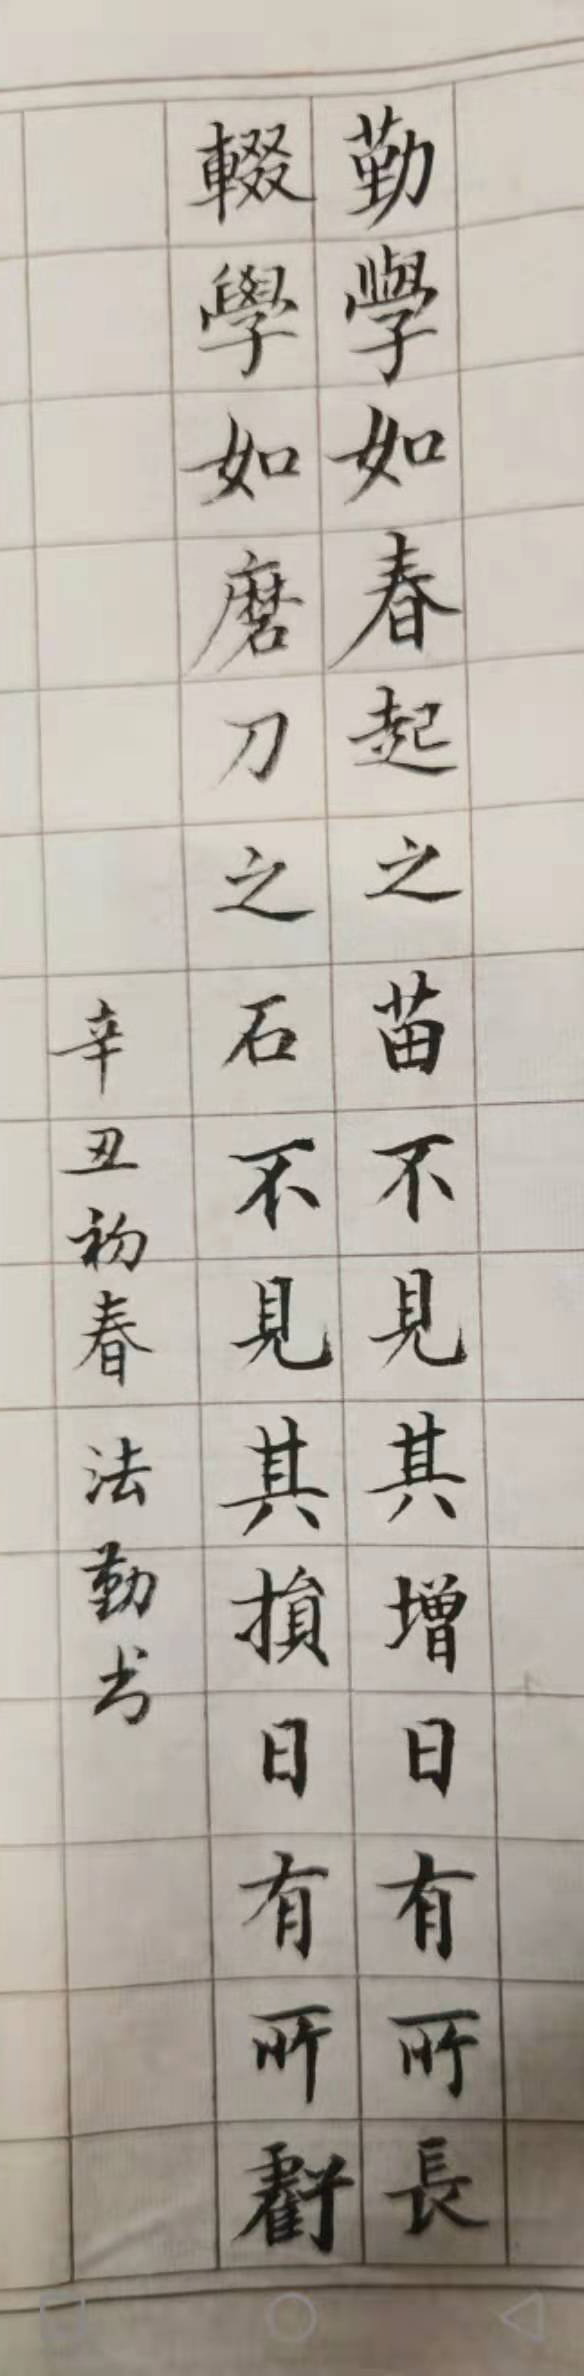 勤學如春起之苗不見其增日有所長
輟學如磨刀之石不見其損日有所虧
辛丑初春法勤书